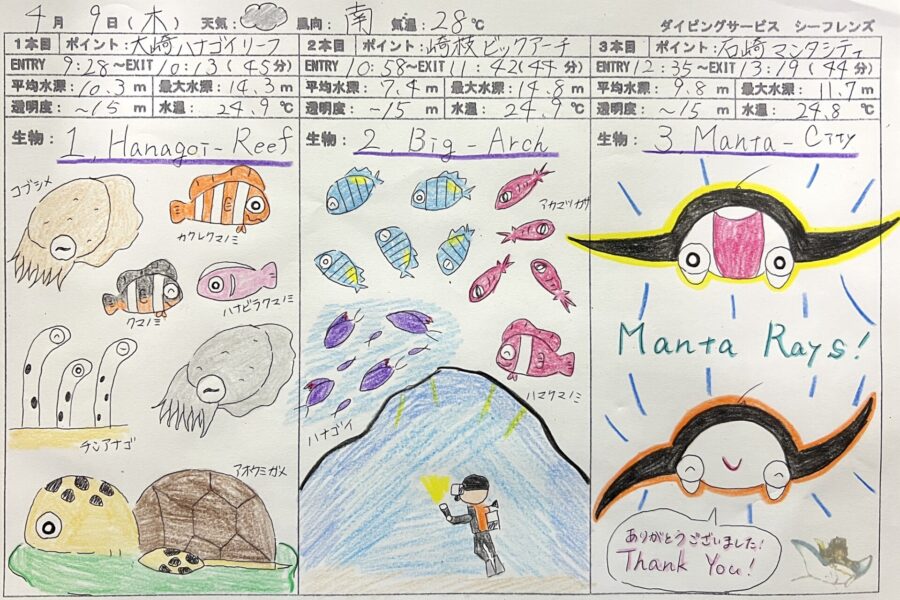 4月 9日(木) 天気: 風向: 南 気温:28℃ ダイビングサービス シーフレンズ
1本目 ポイント:大崎ハナゴイリーフ
ENTRY 9:28~EXIT 10:13(45分)
平均水深:10.3m 最大水深:14.3m
透明度:~15m 水温:24.9℃
生物: 1. Hanagoi-Reef
コブシメ
カクレクマノミ
クマノミ
ハナビラクマノミ
チンアナゴ
アオウミガメ
2本目 ポイント:崎枝ビックアーチ
ENTRY 10:58~EXIT 11:42(44分)
平均水深:7.4m 最大水深:14.8m
透明度:~15m 水温:24.9℃
生物: 2. Big-Arch
アカマツカサ
ハナゴイ
ハマクマノミ
3本目 ポイント:石崎マンタシティ
ENTRY 12:35~EXIT 13:19(44分)
平均水深:9.8m 最大水深:11.7m
透明度:~15m 水温:24.8℃
生物: 3. Manta-City
Manta Rays!
ありがとうございました!
Thank You!